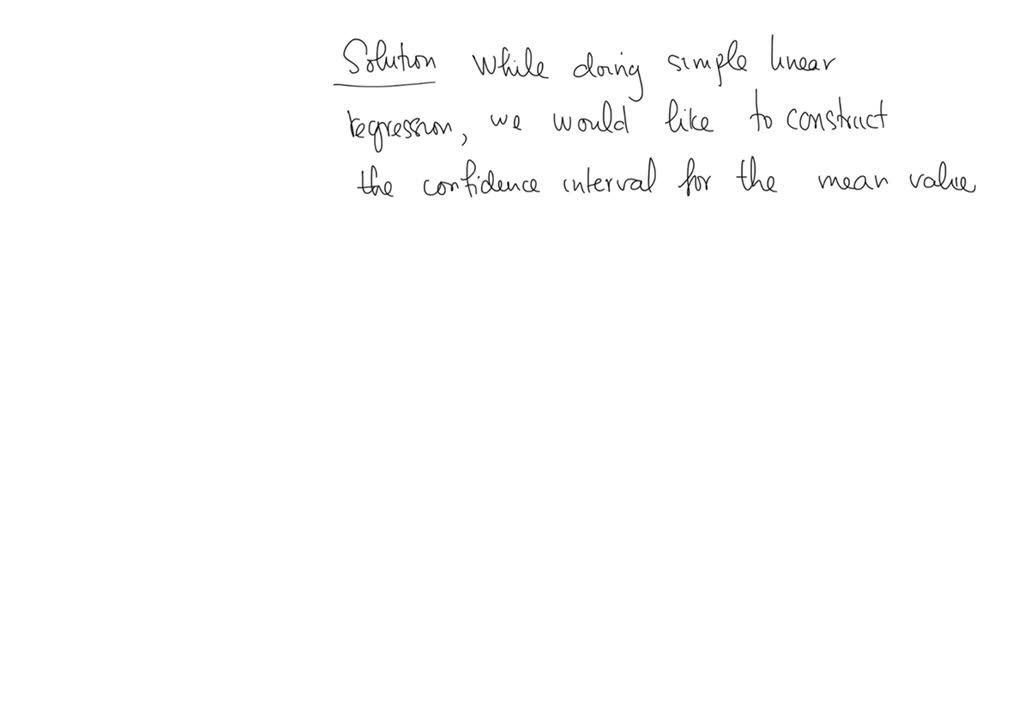 Solution While doing simple linear
regression, we would like to construct
the confidence interval for the mean value